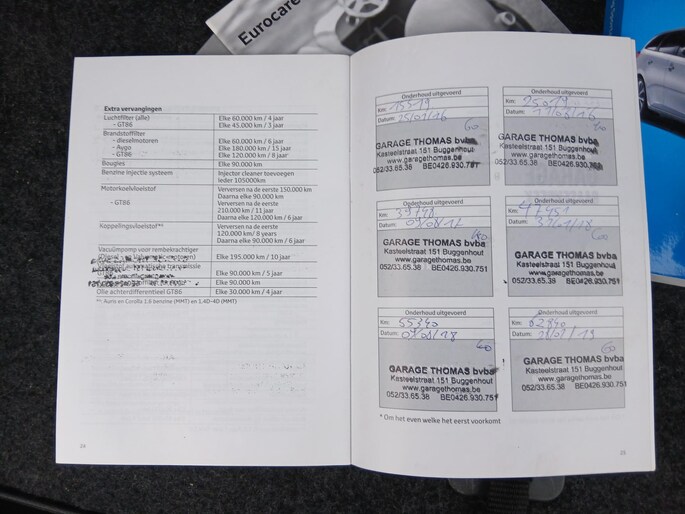 Eurocare
Extra vervangingen
Luchtfilter (alle) Elke 60.000 km / 4 jaar
- GT86 Elke 45.000 km / 3 jaar
Brandstoffilter
- dieselmotoren Elke 60.000 km / 6 jaar
- Aygo Elke 180.000 km / 15 jaar
- GT86 Elke 120.000 km / 8 jaar
Bougies Elke 90.000 km
Benzine injectie systeem Injector cleaner toevoegen
ieder 105000km
Motorkoelvloeistof Verversen na de eerste 150.000 km
Daarna elke 90.000 km
- GT86 Verversen na de eerste
210.000 km / 11 jaar
Daarna elke 120.000 km / 6 jaar
Koppelingsvloeistof*¹ Verversen na de eerste
120.000 km / 8 years
Daarna elke 90.000 km / 6 jaar
Vacuümpomp voor rembekrachtiger
Elke 195.000 km / 10 jaar
Elke 90.000 km / 5 jaar
Elke 90.000 km
Olie achterdifferentieel GT86 Elke 30.000 km / 4 jaar
*¹: Auris en Corolla 1.6 benzine (MMT) en 1.4D-4D (MMT)
24
Onderhoud uitgevoerd
Km: 15519
Datum: 25/01/16
GARAGE THOMAS bvba
Kasteelstraat 151 Buggenhout
www.garagethomas.be
052/33.65.38 BE0426.930.751
Onderhoud uitgevoerd
Km:
Datum:
GARAGE THOMAS bvba
Kasteelstraat 151 Buggenhout
www.garagethomas.be
052/33.65.38 BE0426.930.751
Onderhoud uitgevoerd
Km:
Datum:
GARAGE THOMAS bvba
Kasteelstraat 151 Buggenhout
www.garagethomas.be
052/33.65.38 BE0426.930.751
Onderhoud uitgevoerd
Km: 47451
Datum:
GARAGE THOMAS bvba
Kasteelstraat 151 Buggenhout
www.garagethomas.be
052/33.65.38 BE0426.930.751
Onderhoud uitgevoerd
Km: 55340
Datum:
GARAGE THOMAS bvba
Kasteelstraat 151 Buggenhout
www.garagethomas.be
052/33.65.38 BE0426.930.751
Onderhoud uitgevoerd
Km: 62840
Datum:
GARAGE THOMAS bvba
Kasteelstraat 151 Buggenhout
www.garagethomas.be
052/33.65.38 BE0426.930.751
* Om het even welke het eerst voorkomt
25